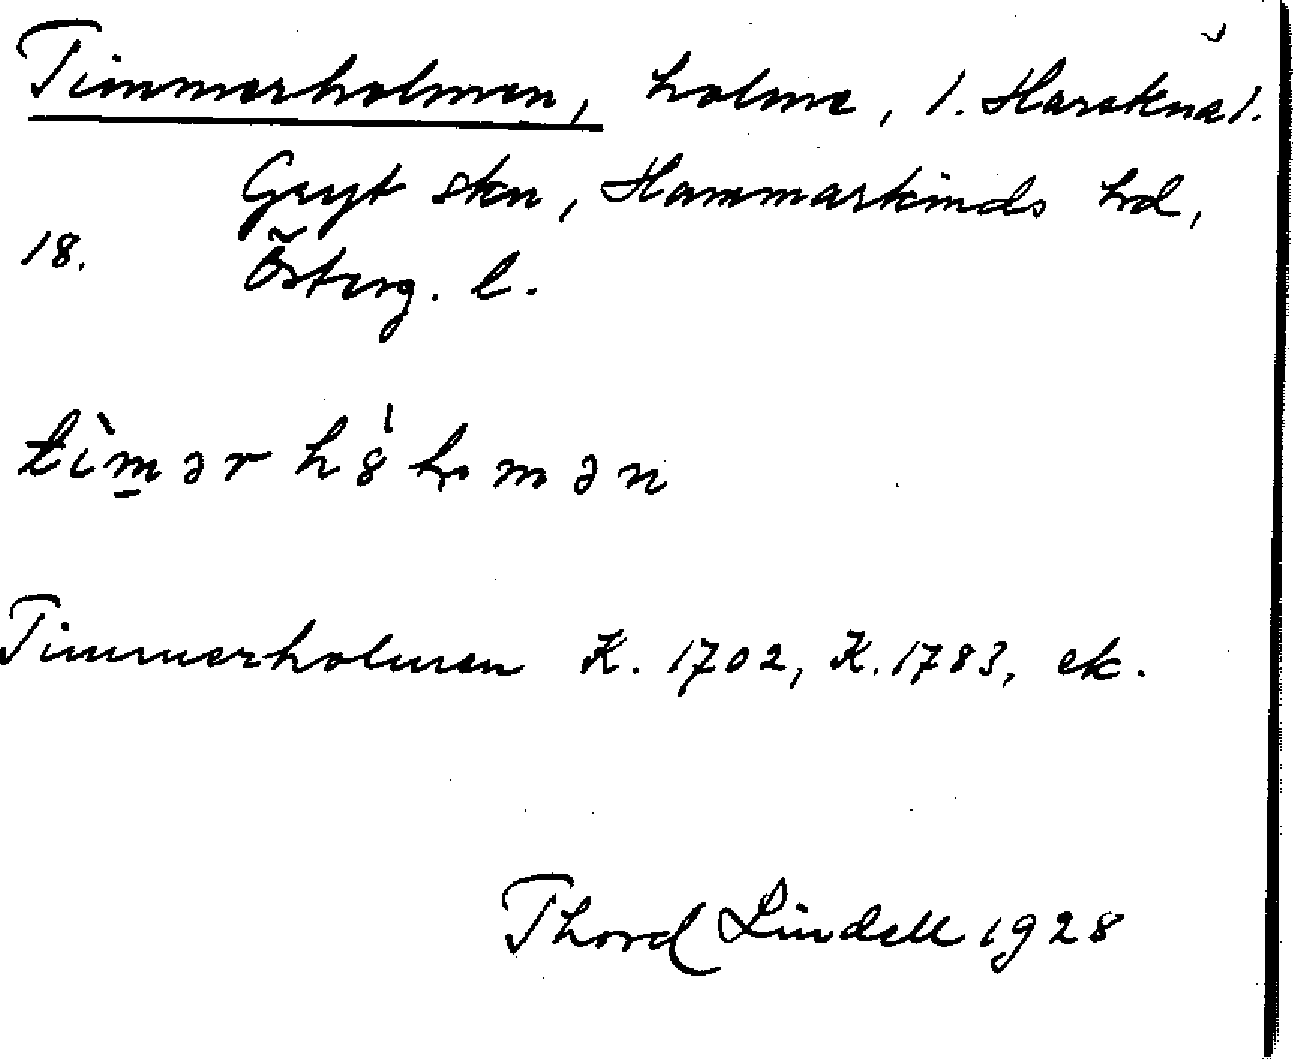 Timmerholmen, holme, 1.
Gryt skn, Hammarkinds hd,
18. Österg. l.
Timmerholmen K. 1702, K. 1783, ek.
Thord Lindell 1928